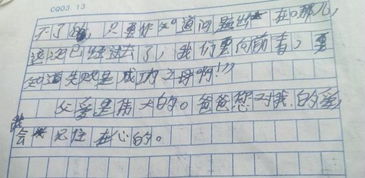 C003 13
不了的，只要你知道问题出在哪儿，
这还已经过去了，我们要向前看，要
知道失败是成功之母啊！”
父爱是伟大的。爸爸您对我的爱
我会记住在心的。